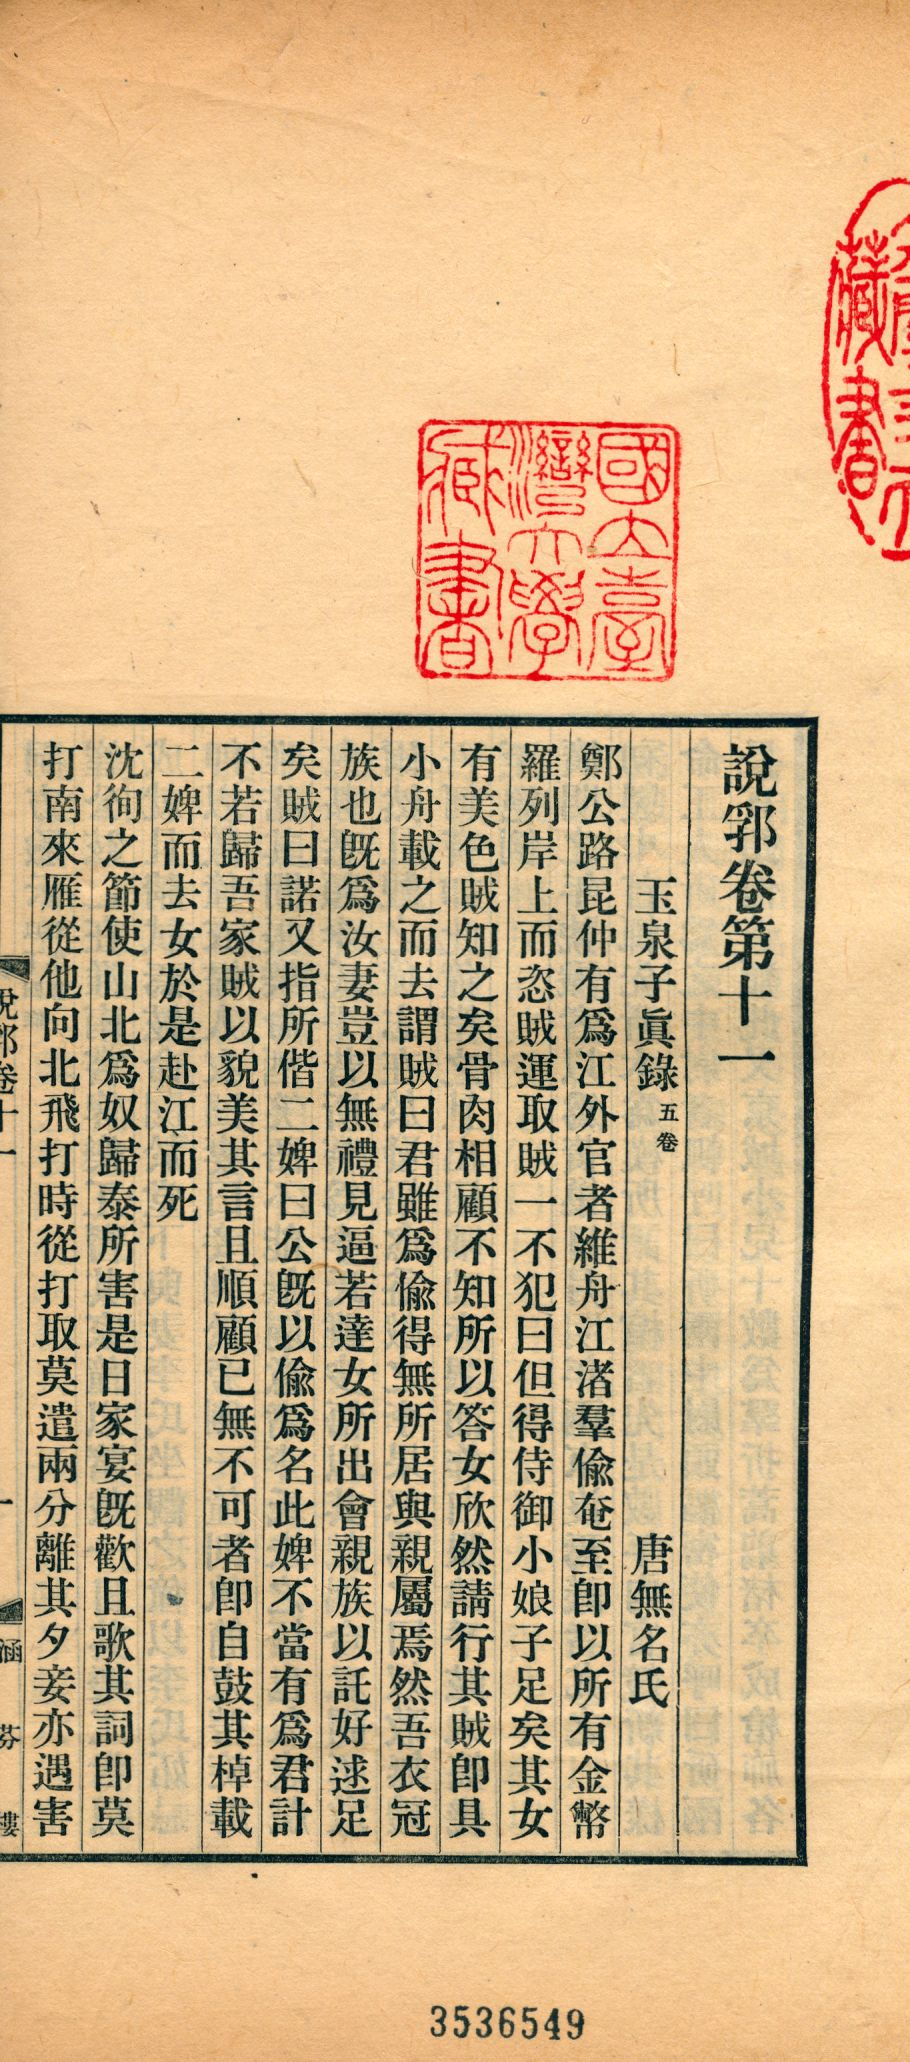 說郛卷第十一
玉泉子眞錄 五卷 唐無名氏
鄭公路昆仲有爲江外官者維舟江渚羣偸奄至卽以所有金幣
羅列岸上而恣賊運取賊一不犯曰但得侍御小娘子足矣其女
有美色賊知之矣骨肉相顧不知所以答女欣然請行其賊卽具
小舟載之而去謂賊曰君雖爲偸得無所居與親屬焉然吾衣冠
族也旣爲汝妻豈以無禮見逼若達女所出會親族以託好逑足
矣賊曰諾又指所偕二婢曰公旣以偸爲名此婢不當有爲君計
不若歸吾家賊以貌美其言且順顧已無不可者卽自鼓其棹載
二婢而去女於是赴江而死
沈徇之節使山北爲奴歸泰所害是日家宴旣歡且歌其詞卽莫
打南來雁從他向北飛打時從打取莫遣兩分離其夕妾亦遇害
說郛卷十一
一
涵芬樓
國立臺灣大學藏書
藏書
3536549